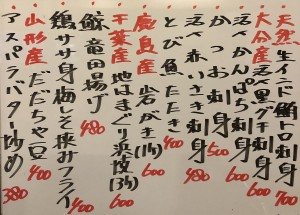 天然生インド鮪トロ刺身 700
大分産活〆黒グチ刺身 600
活〆かんぱち刺身 600
かつお刺身 500
活〆赤いさき刺身 480
とび魚たたき 400
鹿島産岩がき(1ケ) 600
千葉産地はまぐり浜焼(3ケ) 600
鮫竜田揚げ 480
鶏ササ身梅しそ挟みフライ 400
山形産だだちゃ豆 400
アスパラバター炒め 380